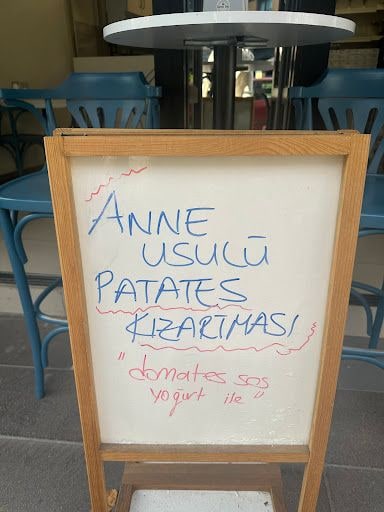 ANNE
USULÜ
PATATES
KIZARTMASI
"domates sos
yoğurt ile"